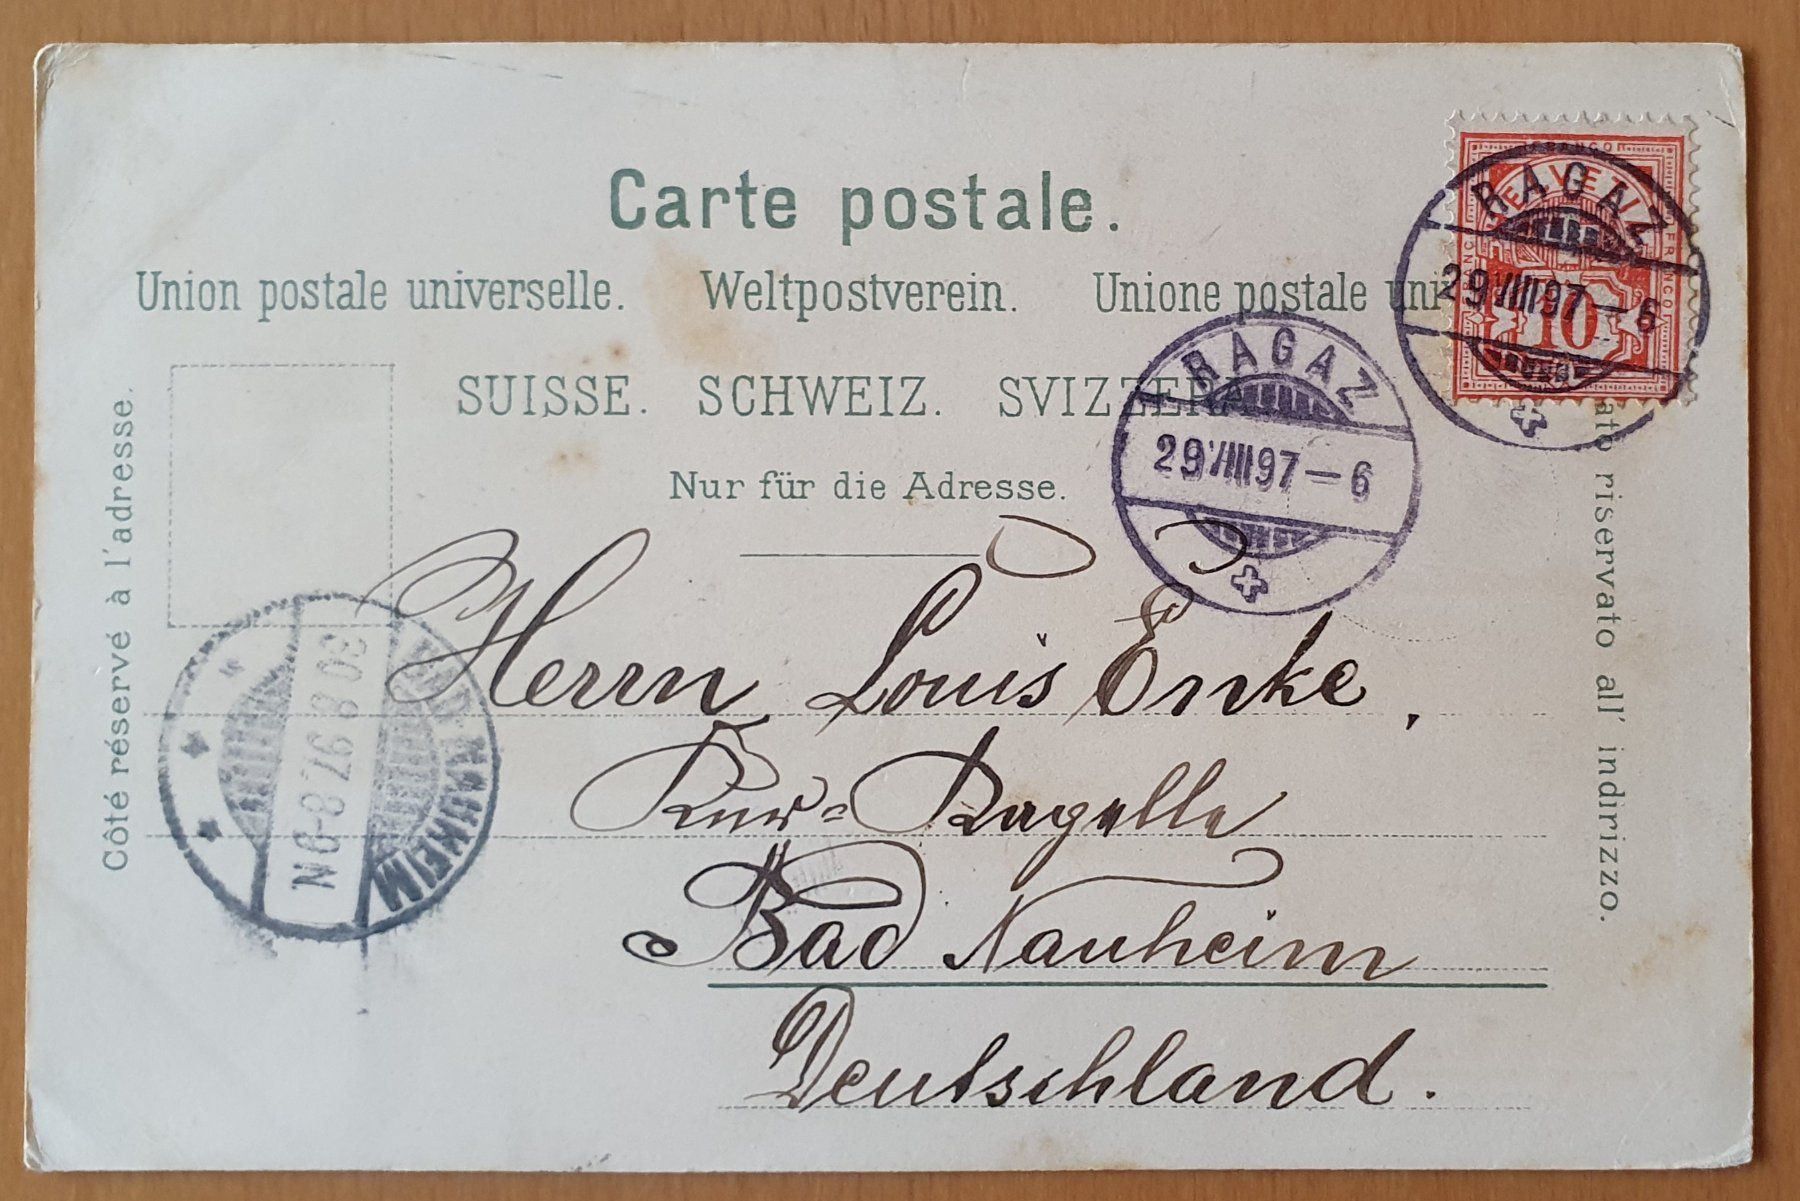 Carte postale.
Union postale universelle. Weltpostverein. Unione postale uni
SUISSE. SCHWEIZ. SVIZZERA
Nur für die Adresse.
Côté réservé à l'adresse.
ato riservato all' indirizzo.
FRANCO
HELVETIA
10
RAGAZ
29.VIII.97–6
RAGAZ
29.VIII.97–6
BAD NAUHEIM
30 8 97. 8-9N
Herrn Louis Enke,
Kur-
Bad Nauheim
Deutschland.